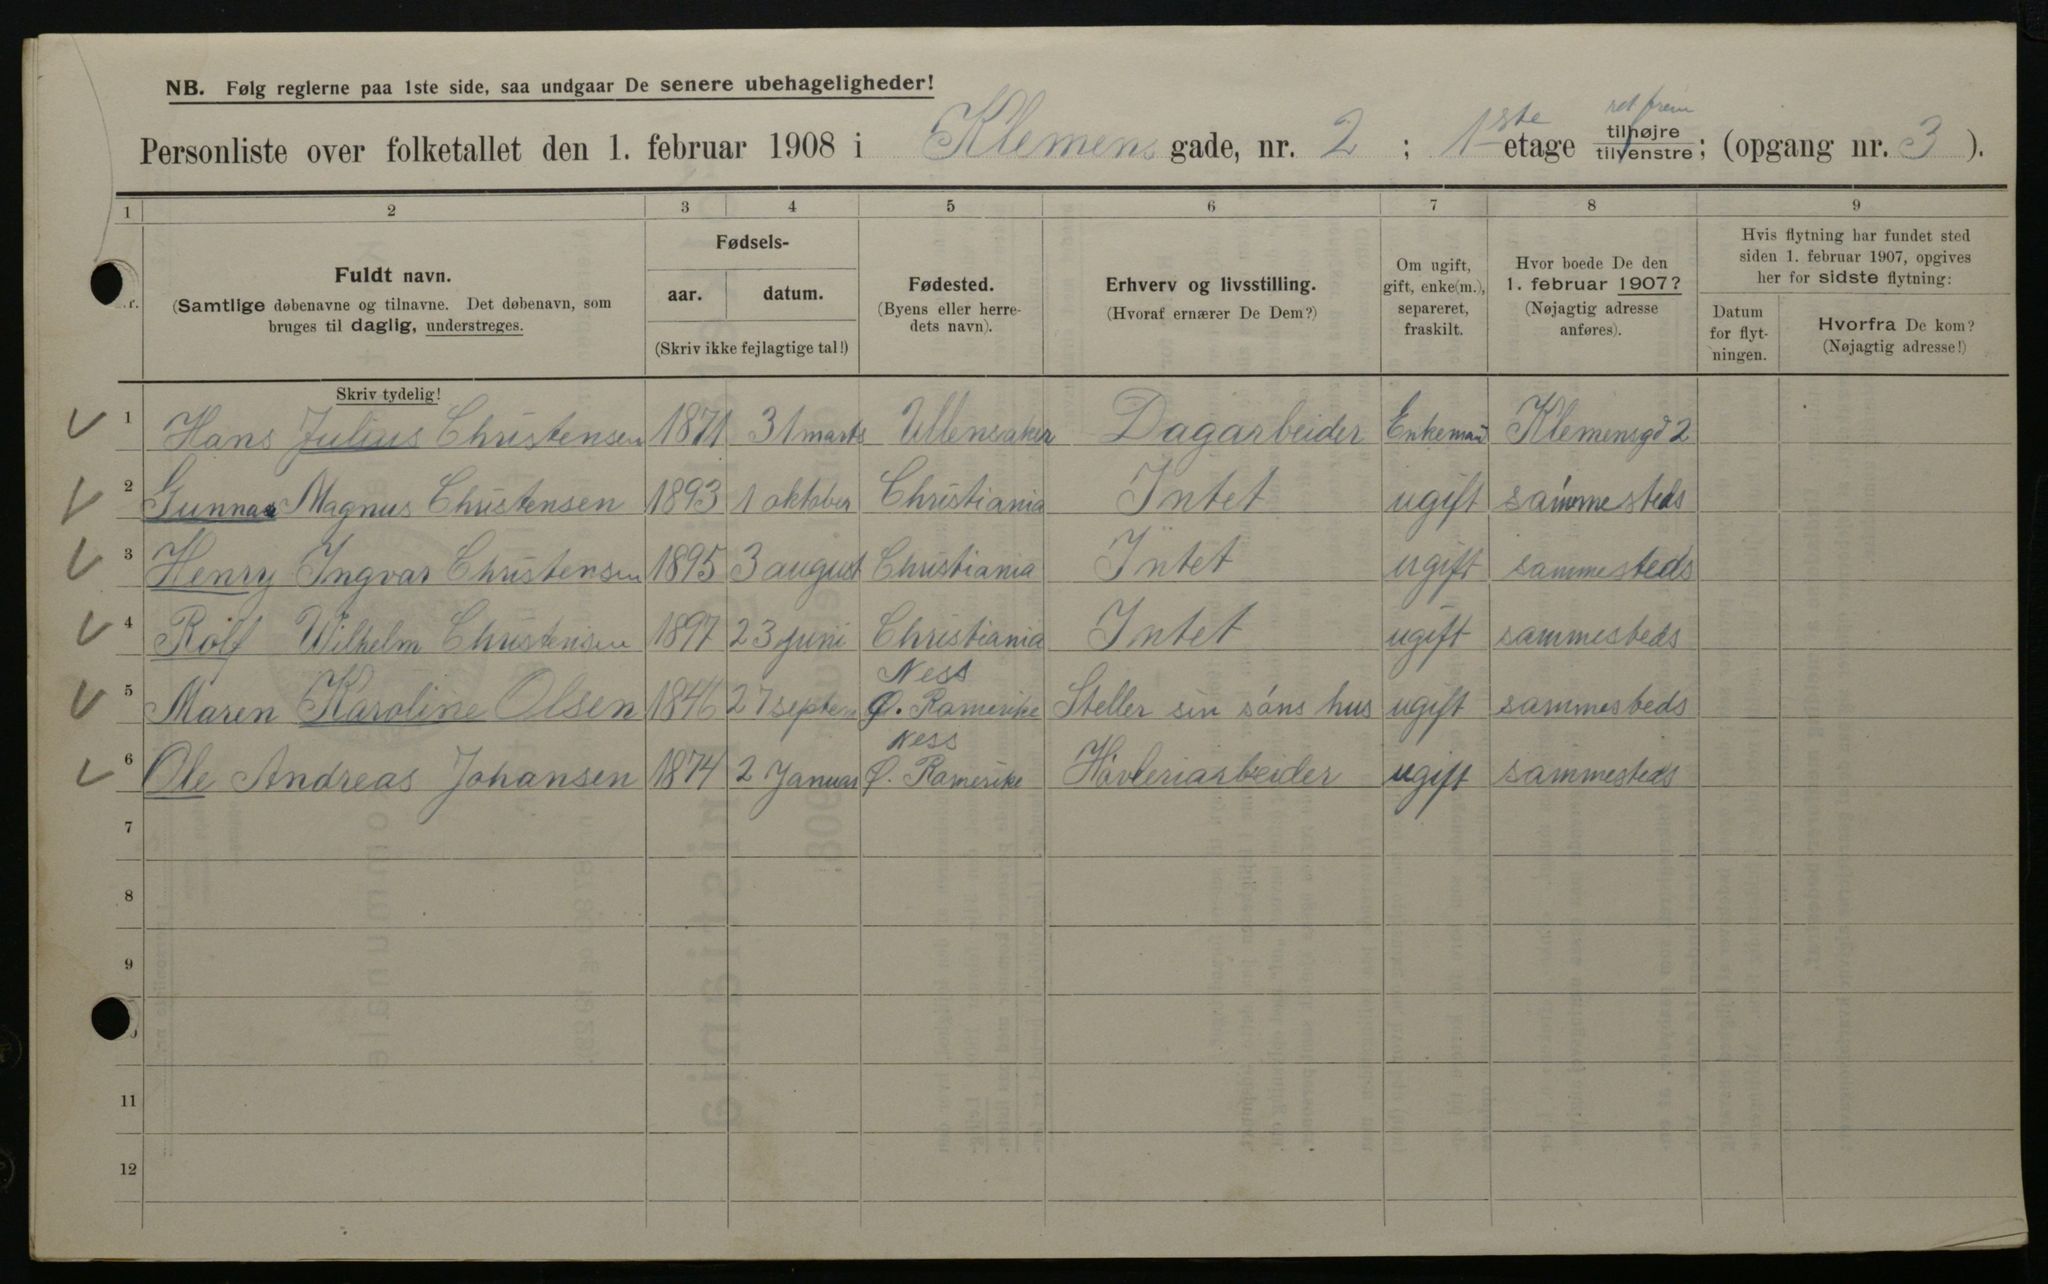 NB. Følg reglerne paa 1ste side, saa undgaar De senere ubehageligheder!
ret frem
Personliste over folketallet den 1. februar 1908 i Klemens gade, nr. 2 ; 1ste etage tilhøjre tilvenstre; (opgang nr. 3 ).
1 2 3 4 5 6 7 8 9
Fuldt navn.
(Samtlige døbenavne og tilnavne. Det døbenavn, som
bruges til daglig, understreges.
Skriv tydelig!
Fødsels-
aar. datum.
(Skriv ikke fejlagtige tal!)
Fødested.
(Byens eller herre-
dets navn).
Erhverv og livsstilling.
(Hvoraf ernærer De Dem?)
Om ugift,
gift, enke(m.),
separeret,
fraskilt.
Hvor boede De den
1. februar 1907?
(Nøjagtig adresse
anføres).
Hvis flytning har fundet sted
siden 1. februar 1907, opgives
her for sidste flytning:
Datum
for flyt-
ningen.
Hvorfra De kom?
(Nøjagtig adresse!)
1 Hans Julius Christensen 1871 31 marts Ullensaker Dagarbeider Enkemand Klemensgd 2
2 Gunnar Magnus Christensen 1893 1 oktober Christiania Intet ugift sammesteds
3 Henry Ingvar Christensen 1895 3 august Christiania Intet ugift sammesteds
4 Rolf Wilhelm Christensen 1897 23 juni Christiania Intet ugift sammesteds
Ness
5 Maren Karoline Olsen 1846 27 septem Ø. Romerike Steller sin søns hus ugift sammesteds
Ness
6 Ole Andreas Johansen 1874 2 Januar Ø. Romerike Høvleriarbeider ugift sammesteds
7
8
9
11
12